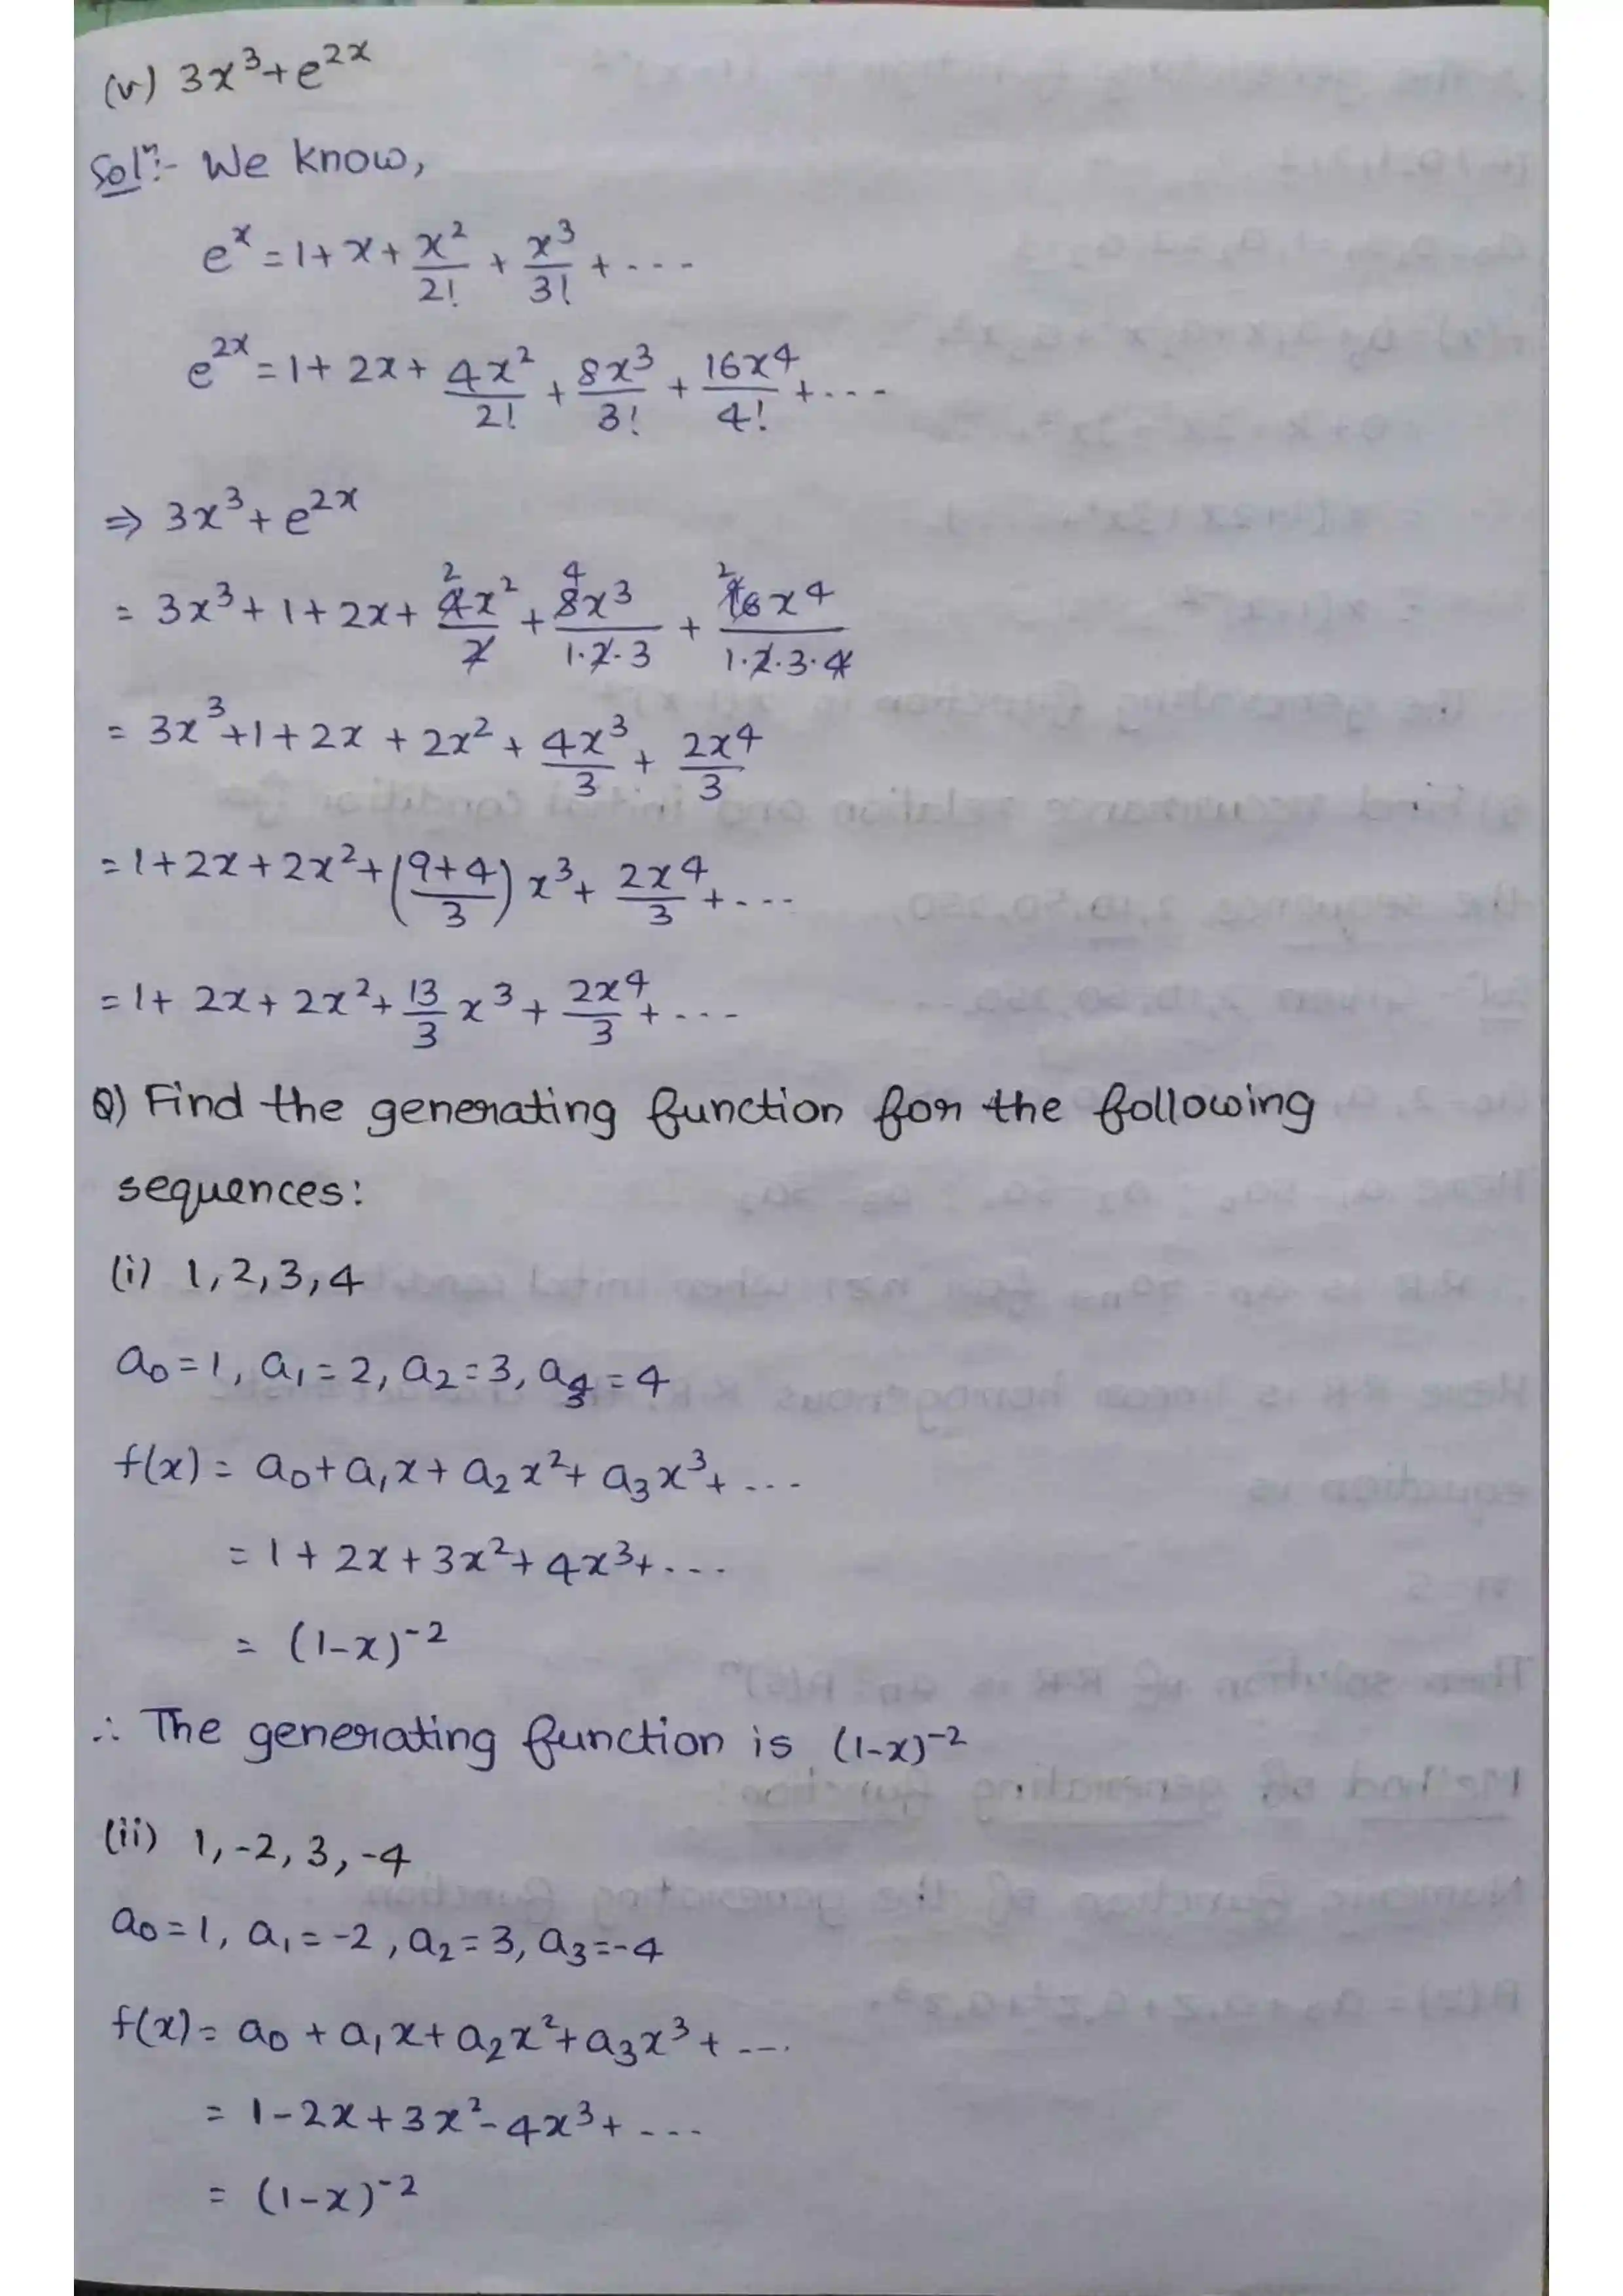 (v) 3x³+e²ˣ
Solⁿ:- We know,
eˣ = 1+x+x²/2! + x³/3! + ---
e²ˣ = 1+2x+4x²/2! + 8x³/3! + 16x⁴/4! + ---
⇒ 3x³+e²ˣ
= 3x³+1+2x+4x²/2 + 8x³/1·2·3 + 16x⁴/1·2·3·4
= 3x³+1+2x+2x²+4x³/3 + 2x⁴/3
= 1+2x+2x²+(9+4/3)x³+2x⁴/3+---
= 1+2x+2x²+13/3 x³+2x⁴/3+---
Q) Find the generating function for the following
sequences:
(i) 1,2,3,4
a₀=1, a₁=2, a₂=3, a₃=4
f(x) = a₀+a₁x+a₂x²+a₃x³+---
= 1+2x+3x²+4x³+---
= (1-x)⁻²
∴ The generating function is (1-x)⁻²
(ii) 1,-2,3,-4
a₀=1, a₁=-2, a₂=3, a₃=-4
f(x) = a₀+a₁x+a₂x²+a₃x³+---
= 1-2x+3x²-4x³+---
= (1-x)⁻²